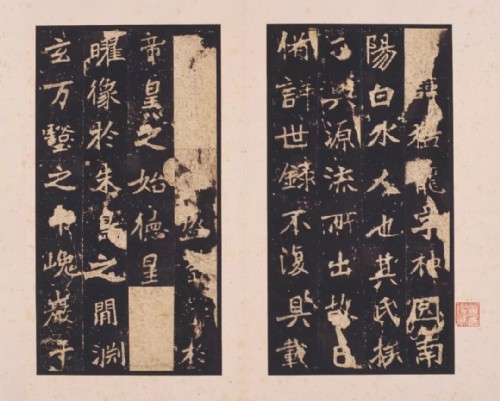 諱猛龍字神冏南
陽白水人也其氏族
分興源流所出故已
備詳世錄不復具載
盛於
帝皇之始德星
曜像於朱鳥之間淵
玄万壑之中嵬巖千